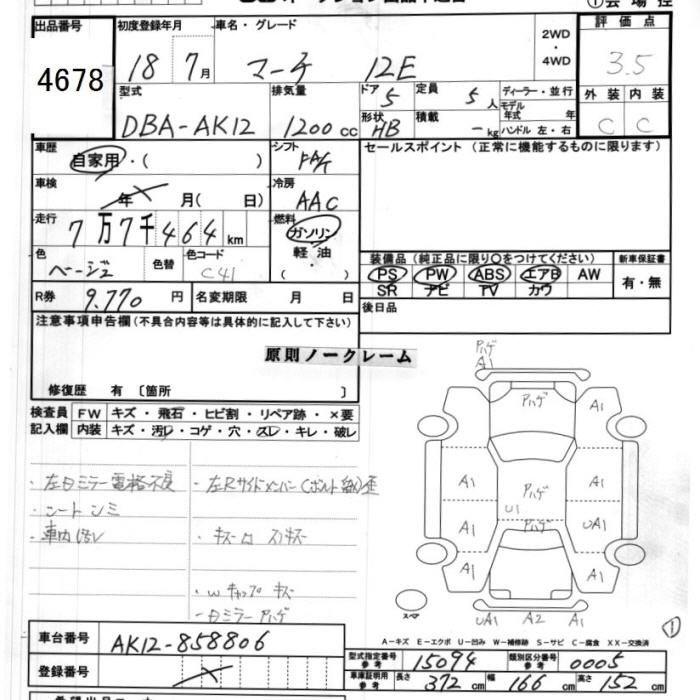 出品番号 4678
初度登録年月 18 7月
車名・グレード マーチ 12E
2WD
・
4WD
①会場控
評価点 3.5
外装 内装
C C
型式 DBA-AK12
排気量 1200cc
ドア 5
定員 5人
形状 HB
積載 -kg
ディーラー・並行
モデル
年式 年
ハンドル 左・右
車歴 自家用・( )
シフト
車検 年 X 月( 日)
冷房 AAC
走行 7万7千464km
燃料 ガソリン
軽油
( )
色 ベージュ
色替
色コード C41
R券 9.770円
名変期限 月 日
セールスポイント(正常に機能するものに限ります)
装備品(純正品に限り○をつけてください)
PS PW ABS エアB AW
SR ナビ TV カワ
新車保証書
有・無
後日品
注意事項申告欄(不具合内容等は具体的に記入して下さい)
原則ノークレーム
修復歴 有〔箇所 〕
検査員 FW キズ・飛石・ヒビ割・リペア跡・×要
記入欄 内装 キズ・汚レ・コゲ・穴・スレ・キレ・破レ
・左日ミラー電格不良
・シートシミ
・車内汚レ
・左Rサイドメンバー(ボルト
・キズ
・wキャップ キズ
・日ミラー ハゲ
ハゲ
A1
ハゲ
A1
A1
A1
ハゲ
U1
A1
UA1
ハゲ
A1
A1
スペア
UA1 A2 A1
①
A-キズ E-エクボ U-凹み W-補修跡 S-サビ C-腐食 XX-交換済
車台番号 AK12-858806
登録番号 X
型式指定番号
参考 15094
類別区分番号
参考 0005
車庫証明用
参考 長さ 372cm 幅 166cm 高さ 152cm